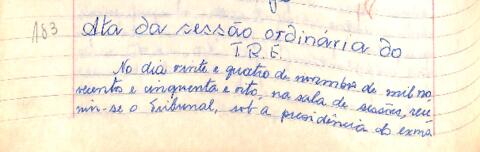 183
Ata da sessão ordinária do
T.R.E.
No dia vinte e quatro de novembro de mil no-
vecentos e cinquenta e oito, na sala de sessões, reu-
niu-se o Tribunal, sob a presidência do exmº